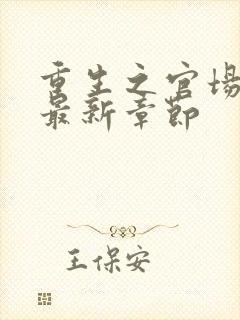 重生之官场
最新章节
王保安